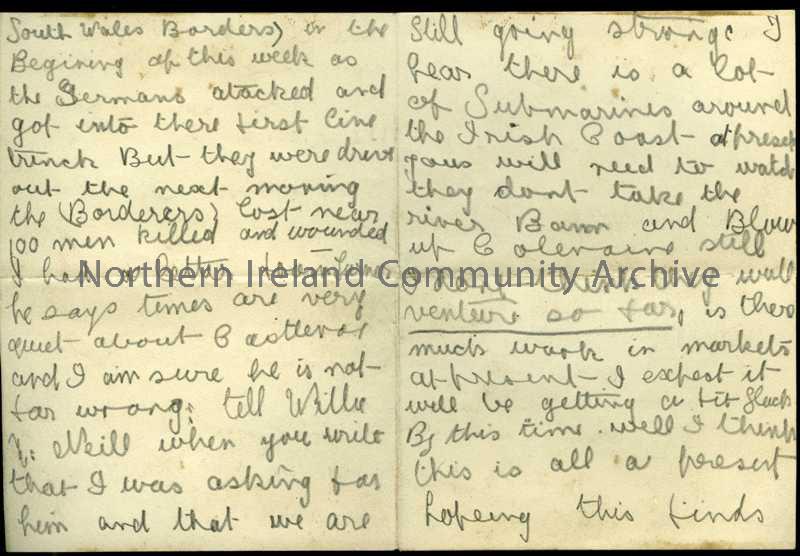 South Wales Borders) in the
Begining of this week as
the Germans atacked and
got into there first line
trench But they were drove
out the next morning
the (Borderers) lost near
100 men killed and wounded
I had a letter from
he says times are very
quiet about Castleroe
and I am sure he is not
far wrong: tell Willie
Mc Neill when you write
that I was asking for
him and that we are
Still going strong: I
hear there is a lot
of Submarines around
the Irish Coast at present
yous will need to watch
they dont take the
river Bann and Blow
up Coleraine still
I dont think they will
venture so far, is there
much work in markets
at present I expect it
will be getting a bit slack
By this time. well I think
this is all a present
hopeing this finds
Northern Ireland Community Archive